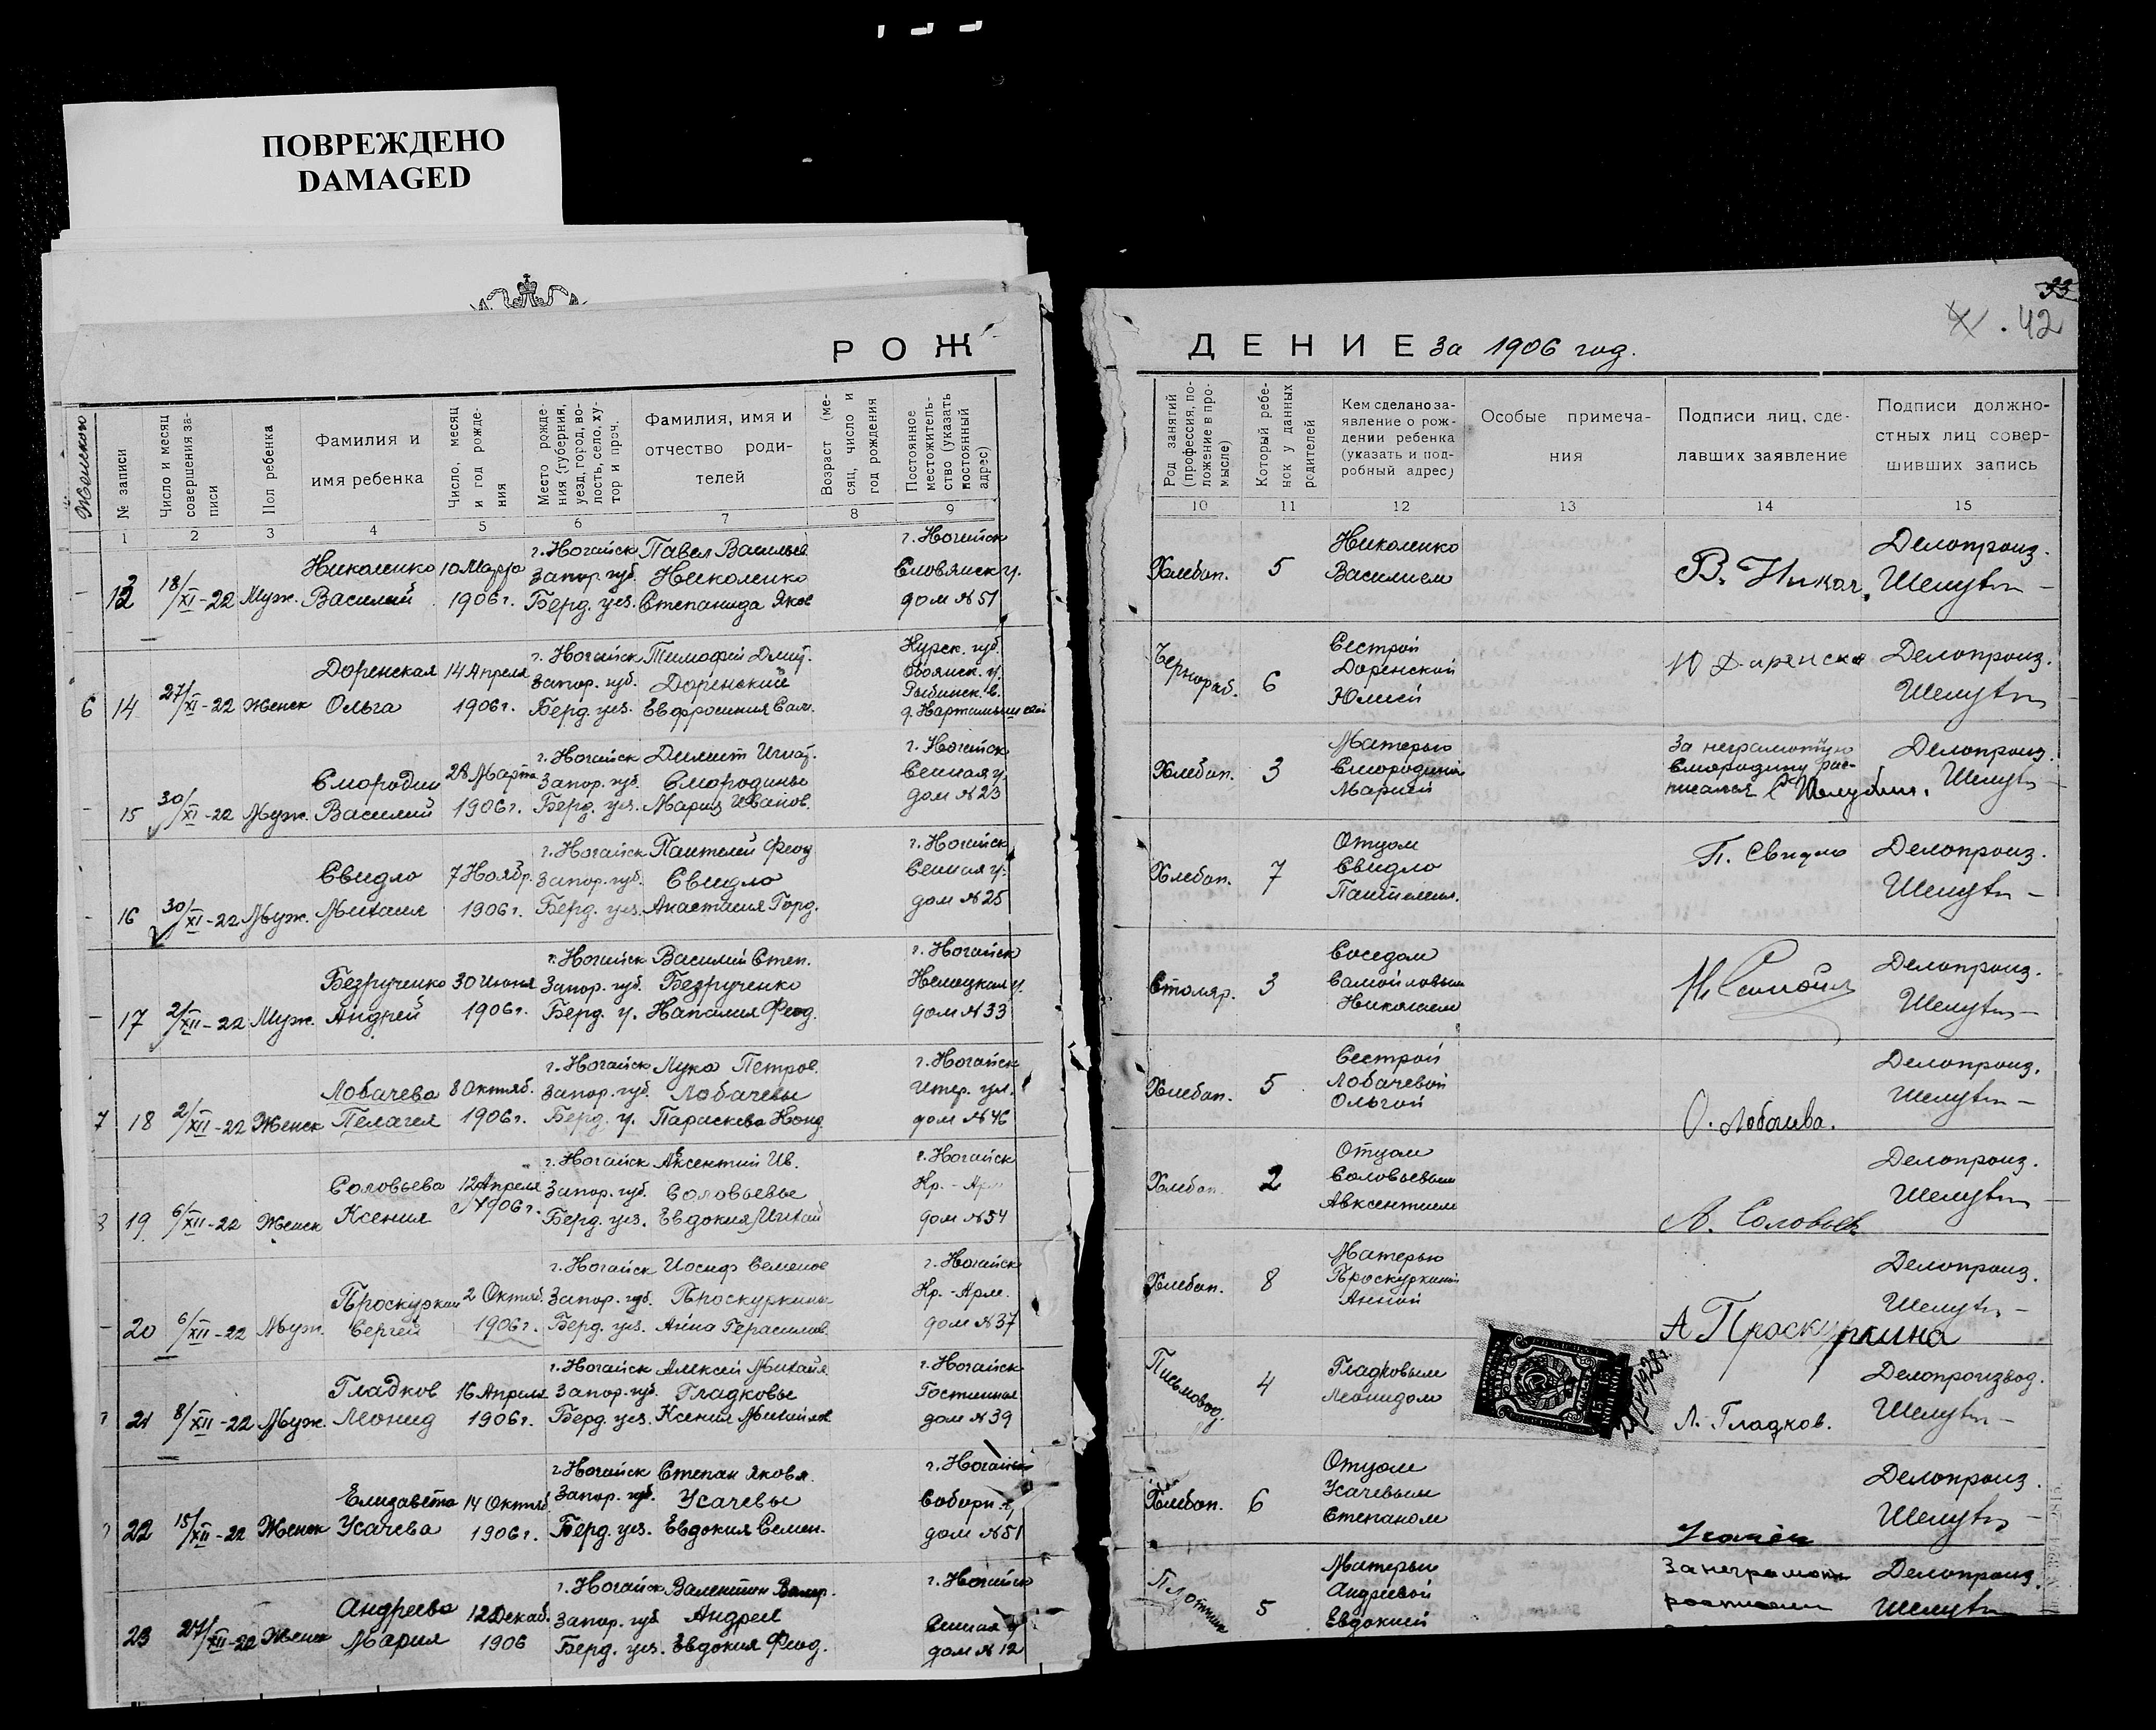 ПОВРЕЖДЕНО
DAMAGED
33
42
РОЖДЕНИЕ за 1906 год.
Женского
№ записи
Число и месяц
совершения за-
писи
Пол ребенка
Фамилия и
имя ребенка
Число, месяц
и год рожде-
ния
Место рожде-
ния (губерния,
уезд, город, во-
лость, село, ху-
тор и проч.
Фамилия, имя и
отчество роди-
телей
Возраст (ме-
сяц, число и
год рождения
Постоянное
местожитель-
ство (указать
постоянный
адрес)
Род занятий
(профессия, по-
ложение в про-
мысле)
Который ребе-
нок у данных
родителей
Кем сделано за-
явление о рож-
дении ребенка
(указать и под-
робный адрес)
Особые примеча-
ния
Подписи лиц, сде-
лавших заявление
Подписи должно-
стных лиц совер-
шивших запись
1 2 3 4 5 6 7 8 9 10 11 12 13 14 15
13
18/XI-22
Муж.
Николенко
Василий
10 Марта
1906 г.
г. Ногайск
Запор. губ.
Берд. уез.
Павел Васильев
Николенко
Степанида Яков
г. Ногайск
Словянск у.
дом № 51
Хлебоп.
5
Николенко
Василием
В. Никол.
Делопроиз.
6
14
27/XI-22
Женск
Доренская
Ольга
14 Апреля
1906 г.
г. Ногайск
Запор. губ.
Берд. уез.
Тимофей Дмит.
Доренский
Евфросиния
Курск. губ.
Обоянск. у.
Рыбинск. в.
Чернораб.
6
Сестрой
Доренской
Юлией
Делопроиз.
15
30/XI-22
Муж.
Смородин
Василий
28 Марта
1906 г.
г. Ногайск
Запор. губ.
Берд. уез.
Игнат.
Смородины
Мария Иванов.
г. Ногайск
Сенная у.
дом № 23
Хлебоп.
3
Матерью
Смородиной
Марией
За неграмотную
Смородину рас-
писался
Делопроиз.
16
30/XI-22
Муж.
Свидло
Михаил
7 Ноябр.
1906 г.
г. Ногайск
Запор. губ.
Берд. уез.
Пантелей Феод
Свидло
Анастасия Горд.
г. Ногайск
Сенная у.
дом № 25
Хлебоп.
7
Отцом
Свидло
Пантелеем.
П. Свидло
Делопроиз.
17
2/XII-22
Муж.
Безрученко
Андрей
30 Июня
1906 г.
г. Ногайск
Запор. губ.
Берд. у.
Василий Степ.
Безрученко
Наталия Феод.
г. Ногайск
Немецкая у.
дом № 33
Столяр.
3
Соседом
Самойловым
Николаем
Делопроиз.
7
18
2/XII-22
Женск
Лобачева
Пелагея
8 Октяб.
1906 г.
г. Ногайск
Запор. губ.
Берд. у.
Лука Петров.
Лобачевы
Параскева Конд
г. Ногайск
дом № 46
Хлебоп.
5
Сестрой
Лобачевой
Ольгой
О. Лобачева.
Делопроиз.
8
19
6/XII-22
Женск
Соловьева
Ксения
12 Апреля
1906 г.
г. Ногайск
Запор. губ.
Берд. уез.
Авксентий Ив.
Соловьевы
Евдокия Михай
г. Ногайск
Кр. - Арм
дом № 54
Хлебоп.
2
Отцом
Соловьевым
Авксентием
А. Соловьев
Делопроиз.
20
6/XII-22
Муж.
Проскурин
Сергей
2 Октяб.
1906 г.
г. Ногайск
Запор. губ.
Берд. уез.
Иосиф Семенов
Проскуркины
Анна Герасимов.
г. Ногайск
Кр. - Арм.
дом № 37
Хлебоп.
8
Матерью
Проскуркиной
Анной
А Проскуркина
Делопроиз.
21
8/XII-22
Муж.
Гладков
Леонид
16 Апреля
1906 г.
г. Ногайск
Запор. губ.
Берд. уез.
Алексей Михайл
Гладковы
Ксения Михайлов
г. Ногайск
Гостинная
дом № 39
Письмовод.
4
Гладковым
Леонидом
Л. Гладков.
Делопроизвод.
22
15/XII-22
Женск
Елизавета
Усачева
14 Октяб
1906 г.
г. Ногайск
Запор. губ.
Берд. уез.
Степан Яковл.
Усачевы
Евдокия Семен.
г. Ногайск
Соборн. у.
дом № 51
Хлебоп.
6
Отцом
Усачевым
Степаном
Делопроиз.
23
27/XII-22
Женск
Андреева
Мария
12 Декаб.
1906
г. Ногайск
Запор. губ
Берд. уез.
Валентин
Андреев
Евдокия Феод.
г. Ногайск
Сенная у
дом № 12
Плотник
5
Матерью
Андреевой
Евдокией
За неграмотн
Делопроиз.